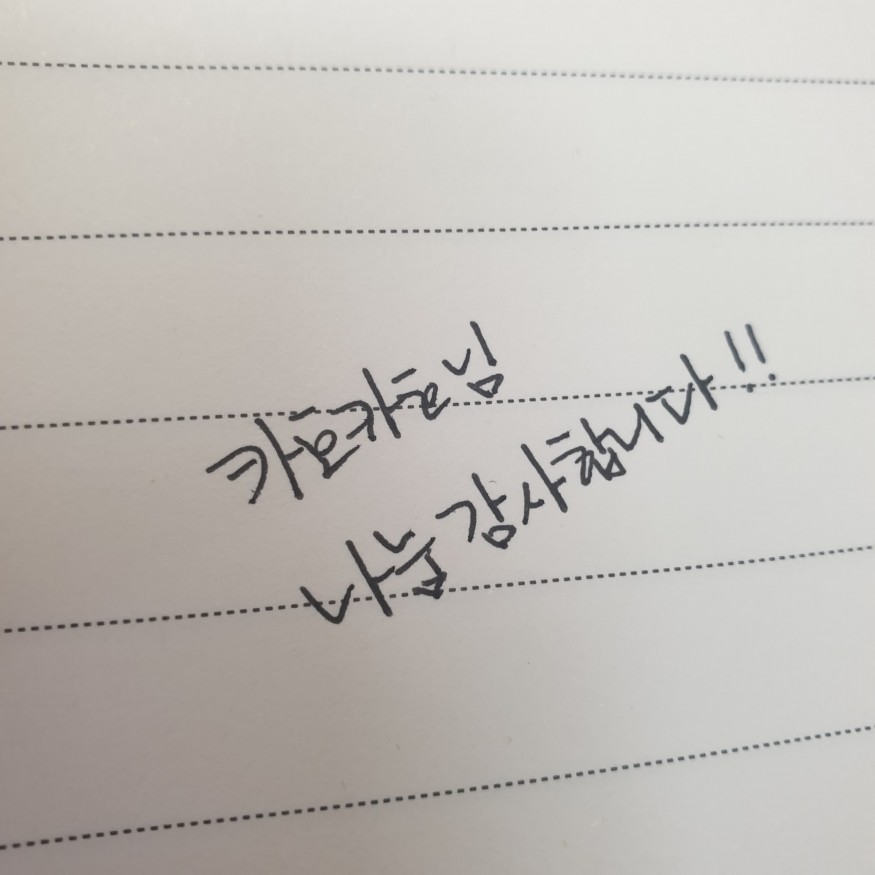 카흐카흐님
나눔 감사합니다!!